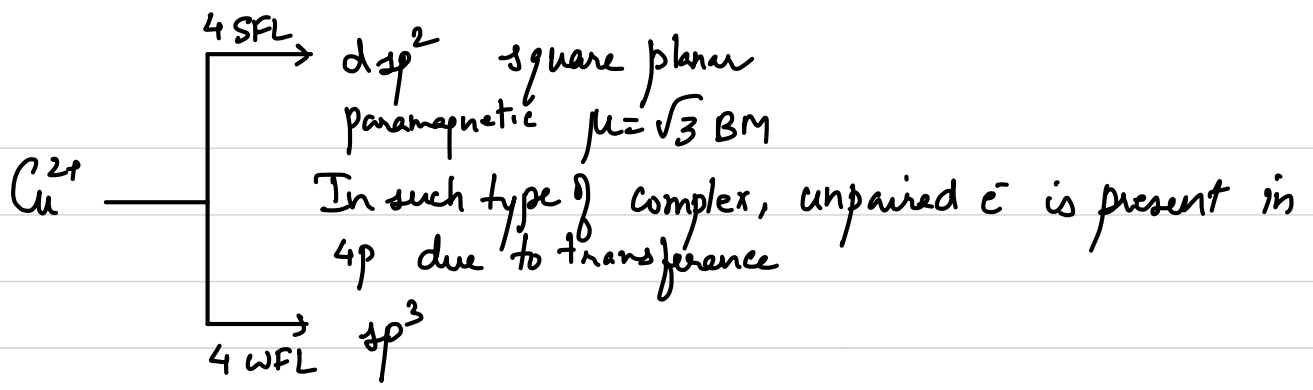 4 SFL
dsp² square planar
paramagnetic μ = √3 BM
Cu²⁺
In such type of complex, unpaired e⁻ is present in
4p due to transference
sp³
4 WFL